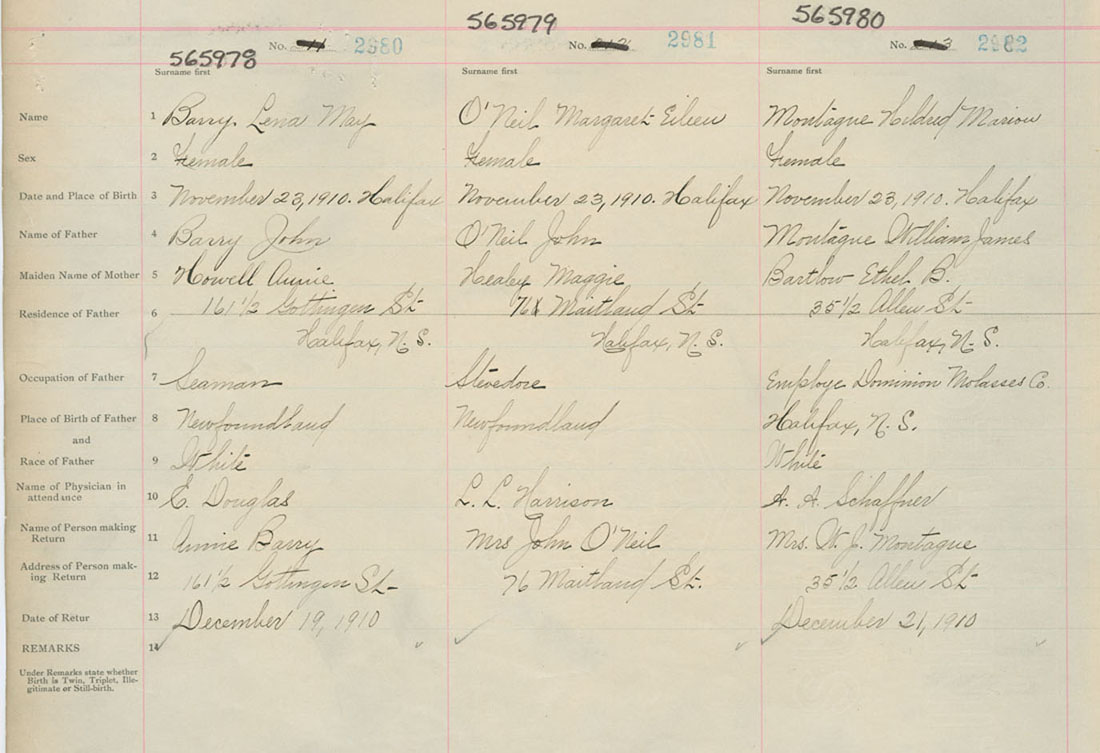 565978 565979 565980
No. 2980 No. 2981 No. 2982
Surname first Surname first Surname first
Name 1 Barry, Lena May O'Neil Margaret Eileen Montague Hildred Marion
Sex 2 Female Female Female
Date and Place of Birth 3 November 23, 1910. Halifax November 23, 1910. Halifax November 23, 1910. Halifax
Name of Father 4 Barry John O'Neil John Montague William James
Maiden Name of Mother 5 Howell Annie Healey Maggie Bartlow Ethel B.
Residence of Father 6 161 1/2 Gottingen St. Maitland St. 35 1/2 Allen St.
Halifax, N. S. Halifax, N. S. Halifax, N. S.
Occupation of Father 7 Seaman Stevedore Employe Dominion Molasses Co.
Place of Birth of Father 8 Newfoundland Newfoundland Halifax, N. S.
and
Race of Father 9 White White
Name of Physician in
attendance 10 E. Douglas L. L. Harrison A. A. Schaffner
Name of Person making
Return 11 Annie Barry Mrs John O'Neil Mrs. W. J. Montague
Address of Person mak-
ing Return 12 161 1/2 Gottingen St. 76 Maitland St. 35 1/2 Allen St.
Date of Retur 13 December 19, 1910 December 21, 1910
REMARKS 14
Under Remarks state whether
Birth is Twin, Triplet, Ille-
gitimate or Still-birth.